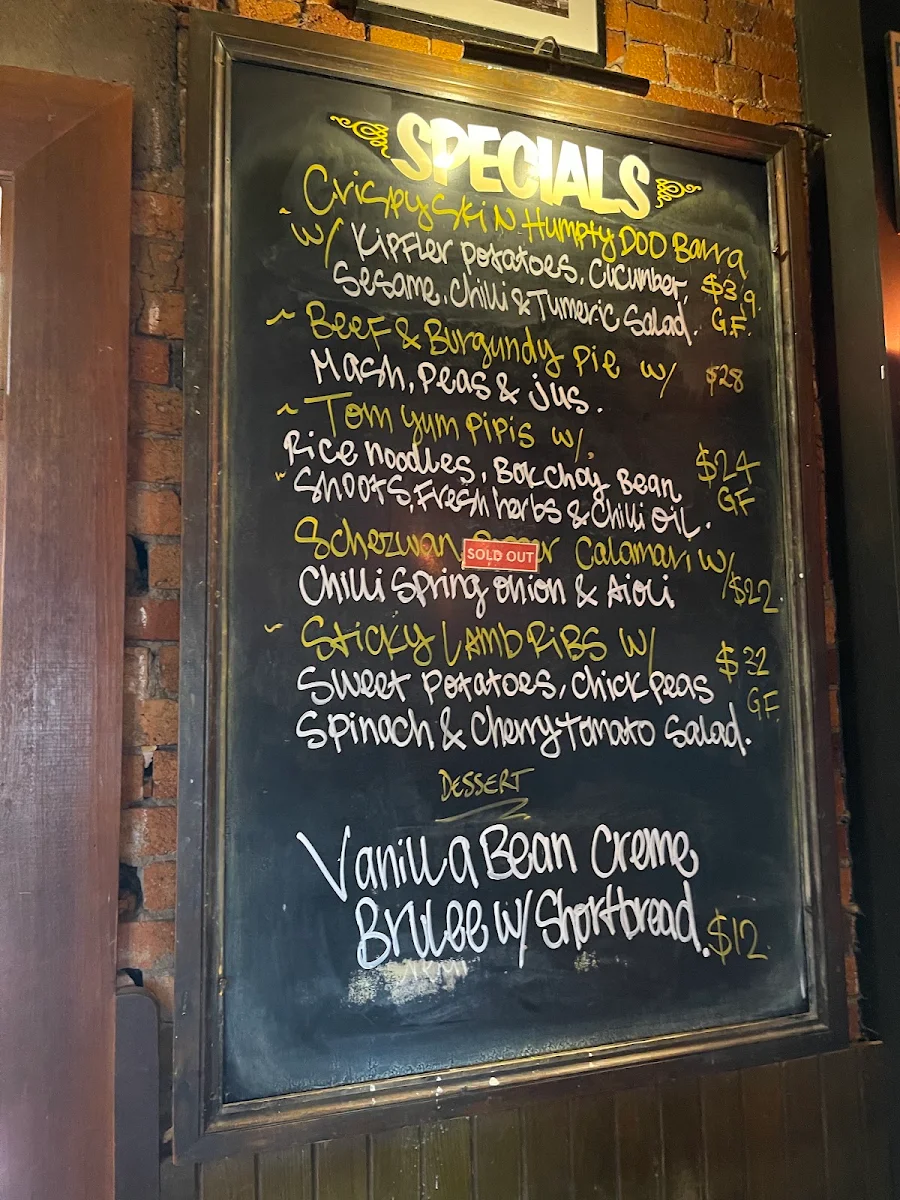 SPECIALS
~ Crispy Skin Humpty Doo Barra
w/ Kipfler potatoes, Cucumber, $39.
Sesame, Chilli & Tumeric Salad. GF.
~ Beef & Burgundy Pie w/ $28
Mash, Peas & jus.
~ Tom yum Pipis w/
Rice noodles, Bok Choy Bean $24
~ Shoots, Fresh herbs & Chilli oil. GF
Schezwan SOLD OUT Calamari w/
Chilli Spring onion & Aioli $22.
~ Sticky Lamb Ribs w/ $32
Sweet Potatoes, Chick peas GF
Spinach & Cherry Tomato Salad.
DESSERT
Vanilla Bean Creme
Brulee w/ Shortbread. $12.